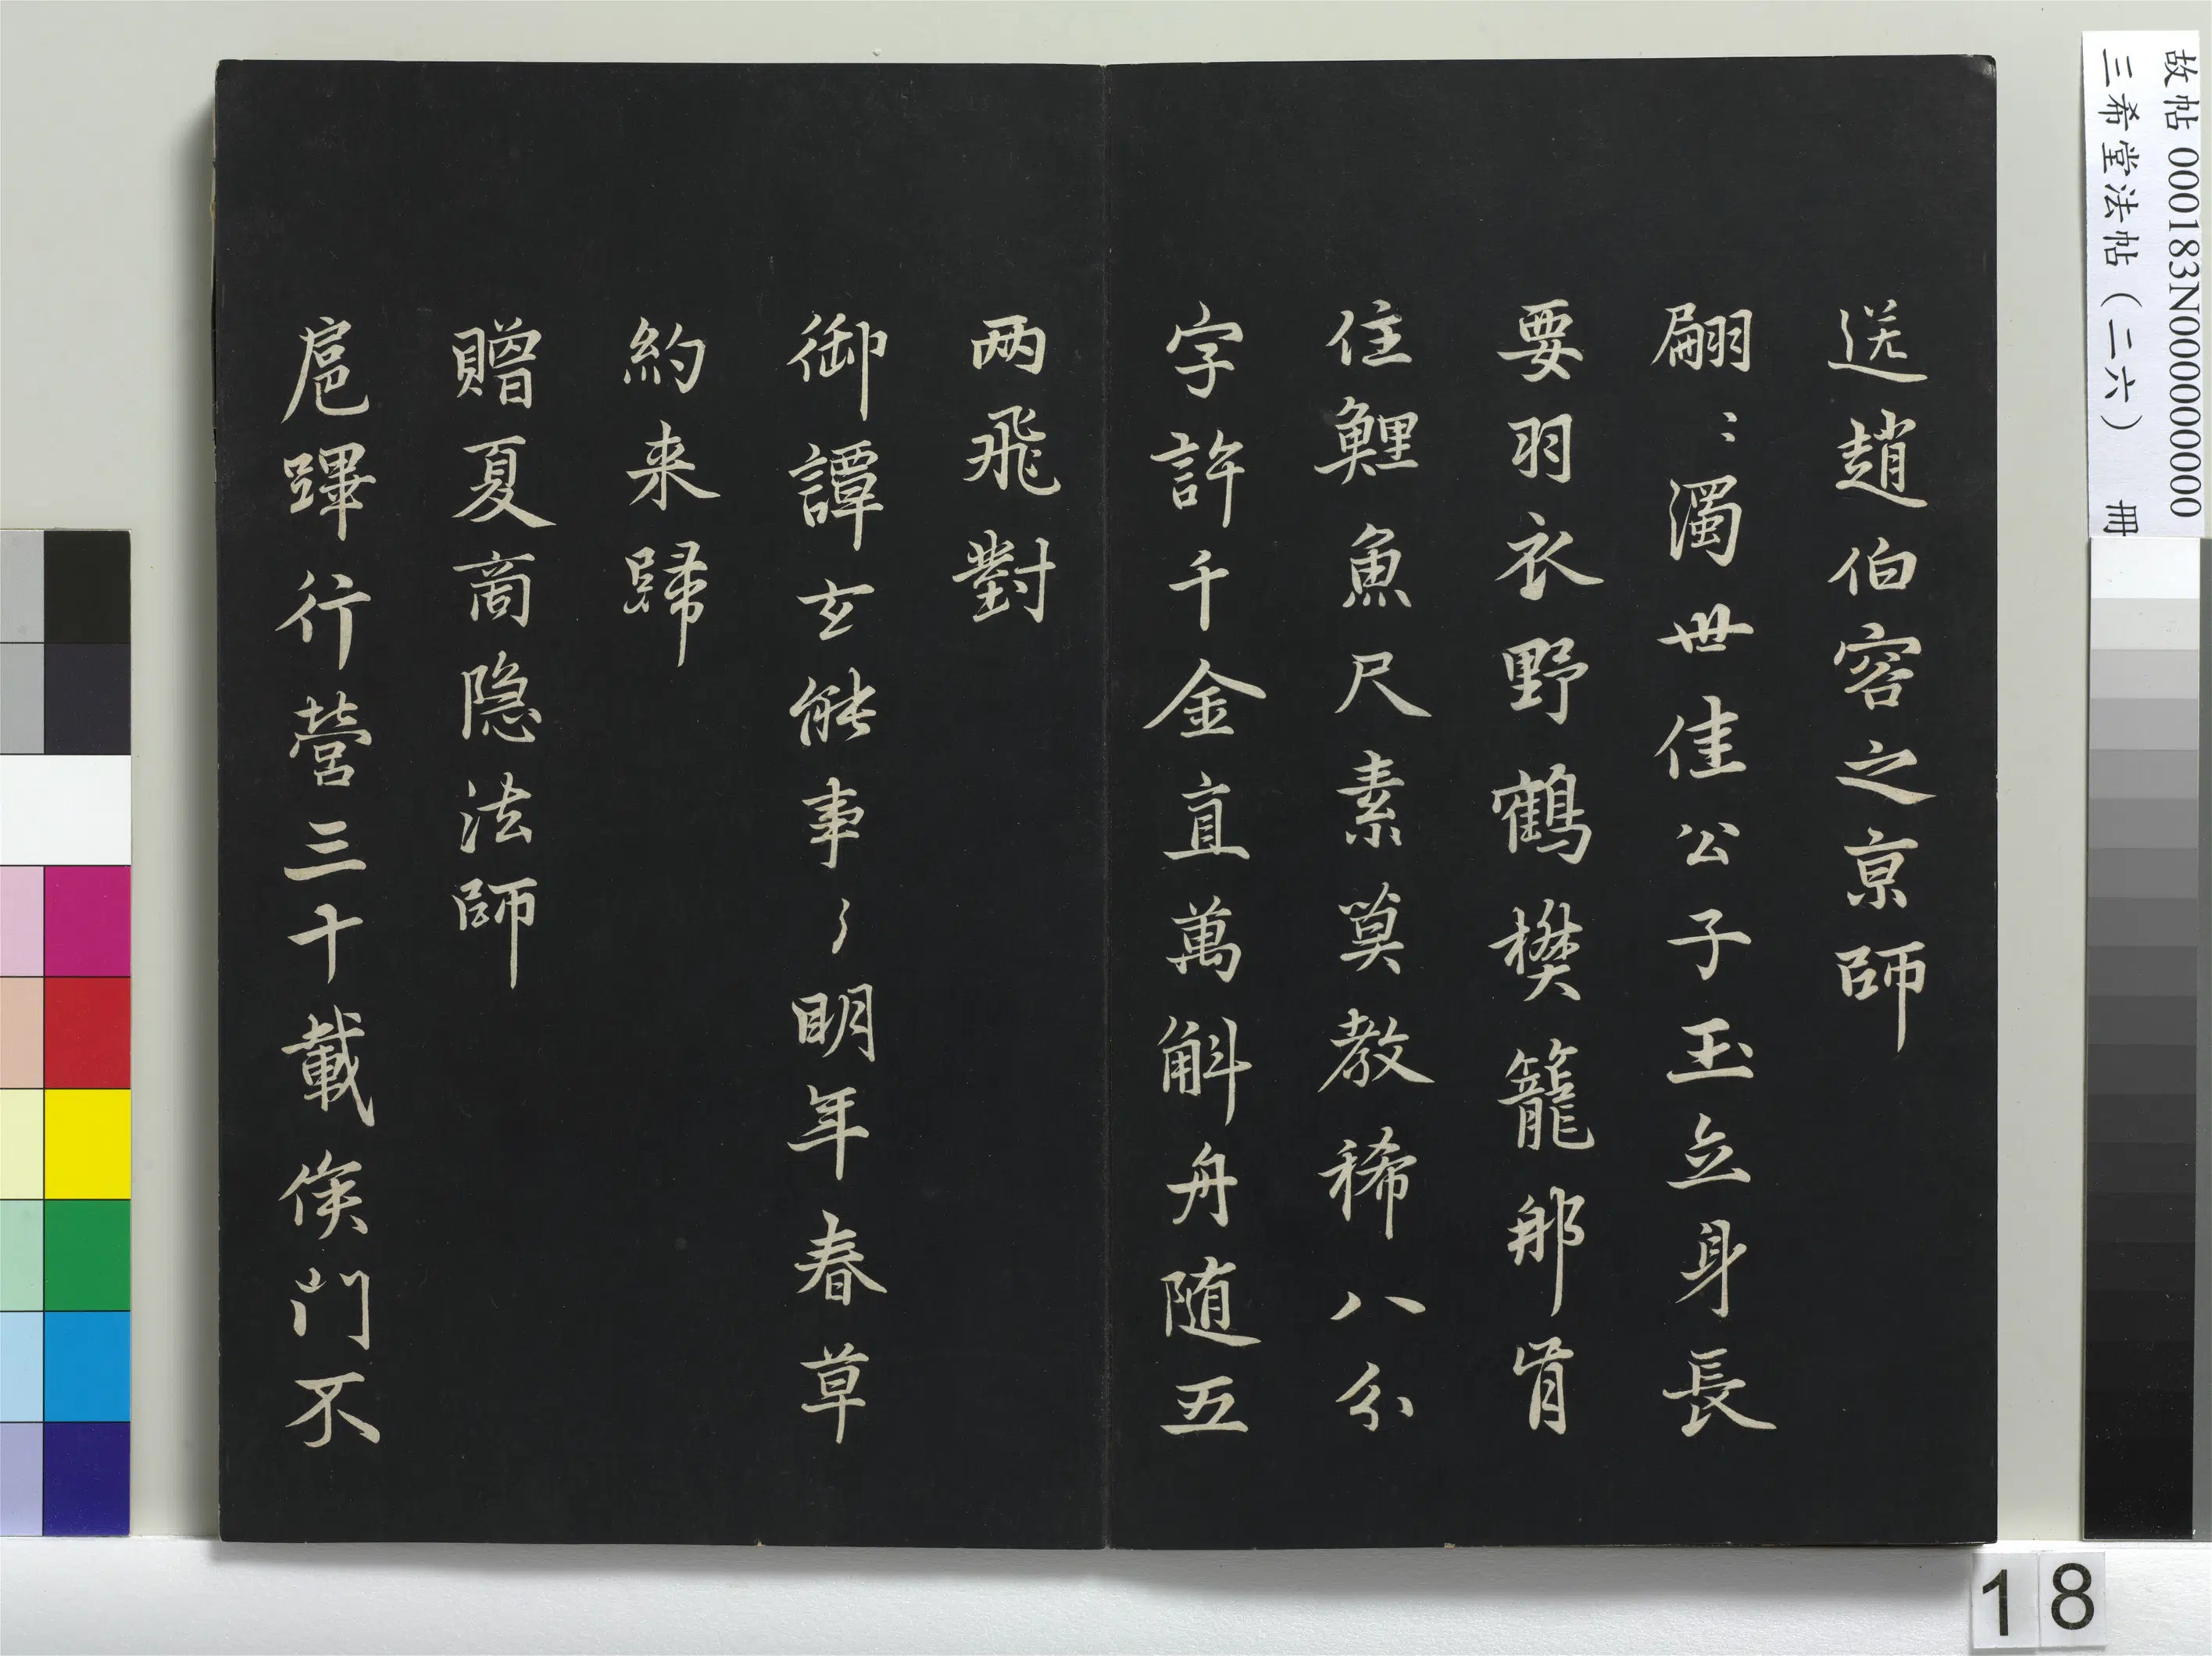 送趙伯容之京師
翩〻濁世佳公子玉立身長
要羽衣野鶴樊籠那肯
住鯉魚尺素莫教稀八分
字許千金直萬斛舟随五
两飛對
御譚玄能事〻明年春草
約来歸
贈夏啇隐法師
扈蹕行營三十載侯門不
故帖 000183N000000000
三希堂法帖（二六） 冊
18